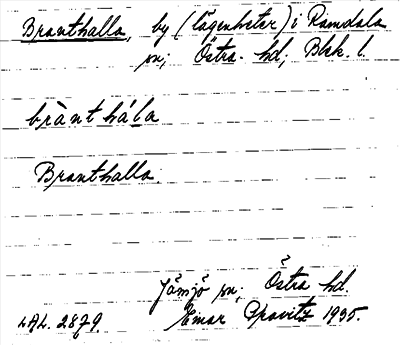 Branthalla, by (lägenheter) i Ramdala
sn; Östra hd, Blek. l.
brànthál̯a
Branthalla.
Jämjö sn; Östra hd.
LAL. 2879. Einar 1935.